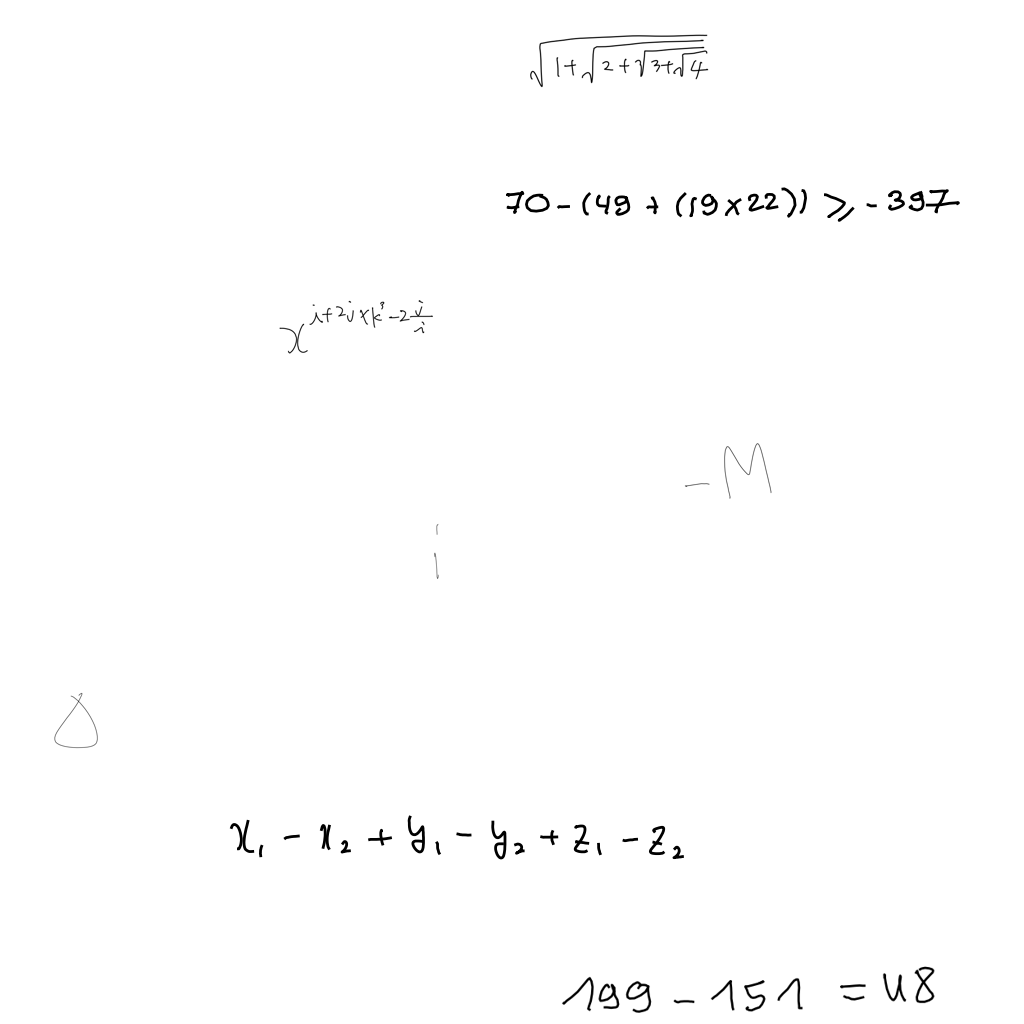 √(1+√(2+√(3+√4)))
70-(49+(19×22))⩾-397
x^{i+2j×k^3-2\frac{j}{i}}
-M
i
Δ
x₁-x₂+y₁-y₂+z₁-z₂
199-151=48